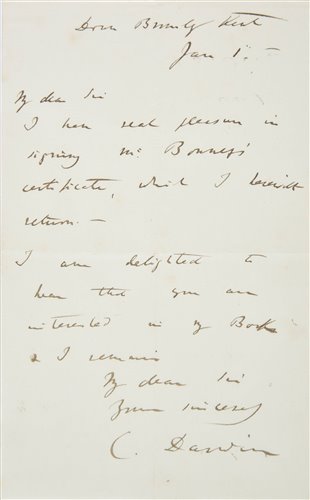 Down Bromley Kent
Jan 1. —
My dear Sir
I have real pleasure in
signing Mr Bonney's
certificate, which I herewith
return. —
I am delighted to
hear that you are
interested in my Book
& I remain
My dear Sir
Yours sincerely
C. Darwin